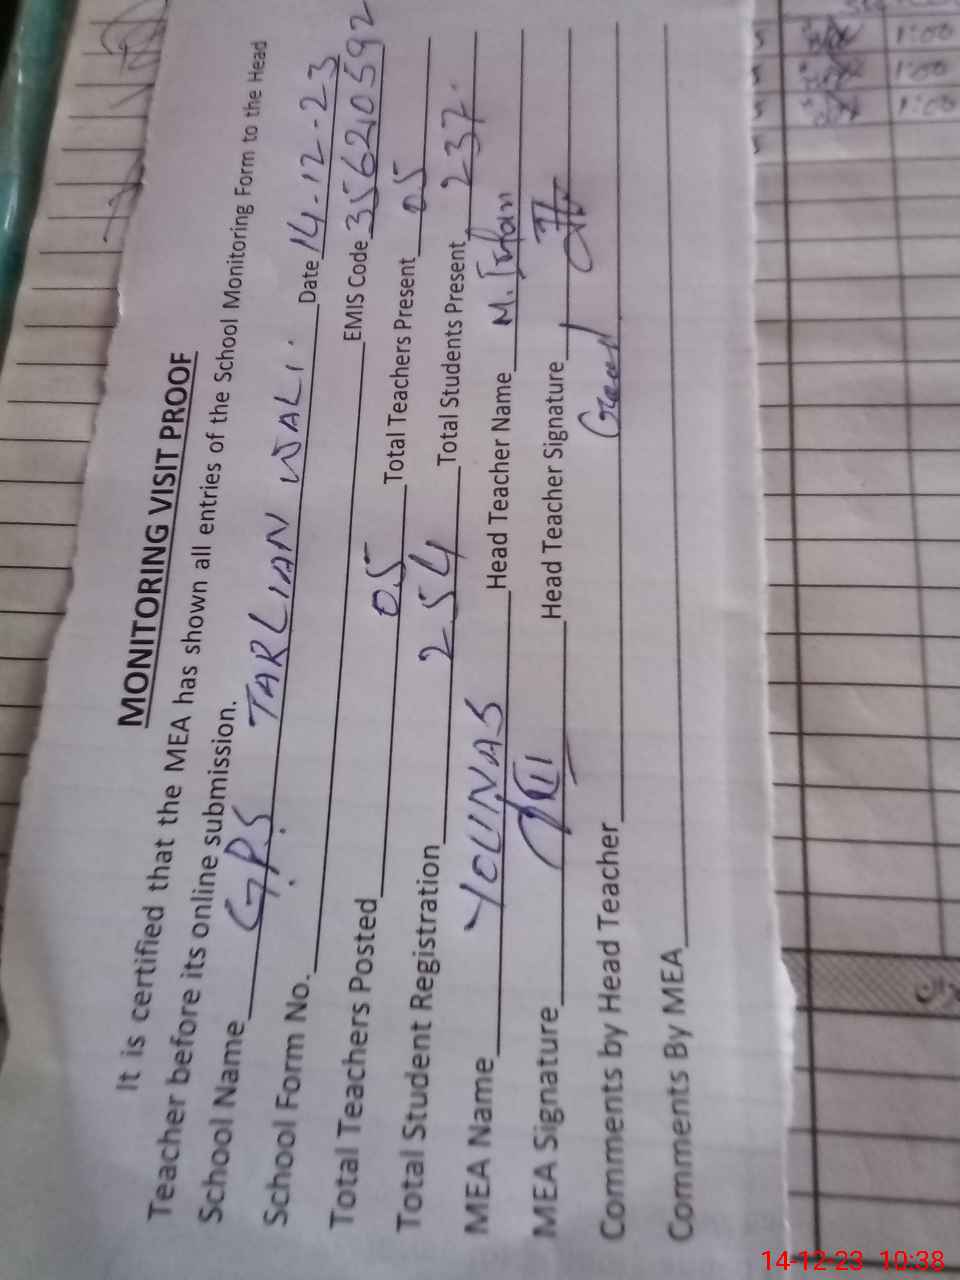 MONITORING VISIT PROOF
It is certified that the MEA has shown all entries of the School Monitoring Form to the Head
Teacher before its online submission.
School Name G.P.S TARLIAN WALI. Date 14-12-23
School Form No. EMIS Code 35620592
Total Teachers Posted 05 Total Teachers Present 05
Total Student Registration 254 Total Students Present 237.
MEA Name YOUNAS Head Teacher Name M. Irfan
MEA Signature Head Teacher Signature
Comments by Head Teacher Good
Comments By MEA
1:00
1:00
1:00
14-12-23 10:38